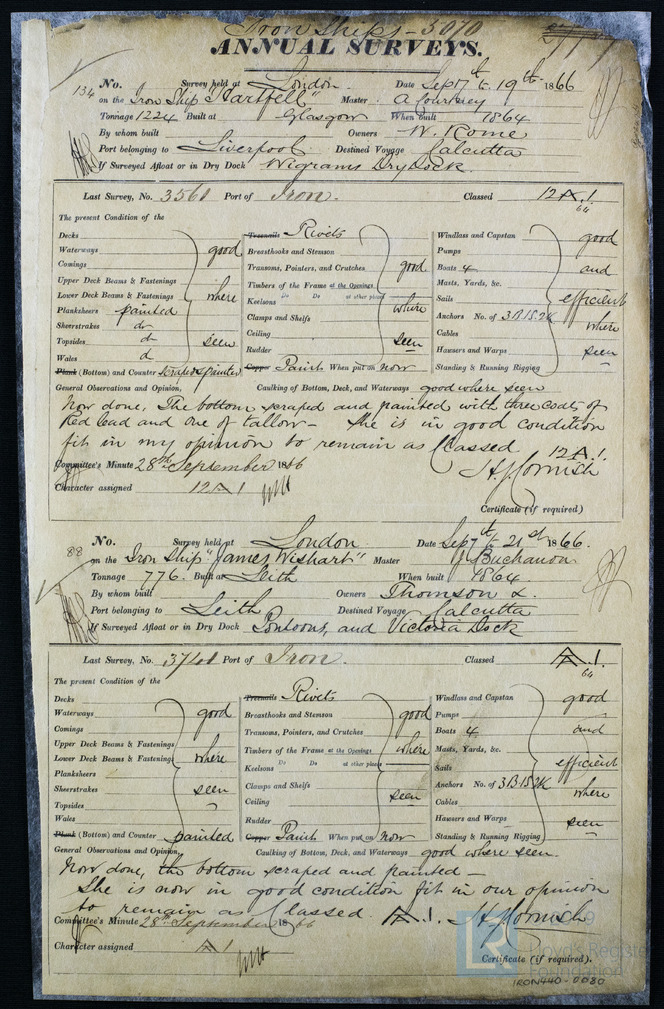 Iron Ships - 5070
ANNUAL SURVEYS.
134 No. Survey held at London Date Sep 7th & 19th 1866
on the Iron Ship "Hartfell" Master A Courtney
Tonnage 1224 Built at Glasgow When built 1864
By whom built Owners W. Rome
Port belonging to Liverpool Destined Voyage Calcutta
If Surveyed Afloat or in Dry Dock Wigrams Dry Dock.
Last Survey, No. 3561 Port of Iron. Classed 12 A.1.
64
The present Condition of the
Decks
Waterways good
Comings
Upper Deck Beams & Fastenings
Lower Deck Beams & Fastenings where
Planksheers painted
Sheerstrakes do
Topsides do seen
Wales do
Plank (Bottom) and Counter scraped & painted
Treenails Rivets
Breasthooks and Stemson
Transoms, Pointers, and Crutches good
Timbers of the Frame at the Openings
Do Do at other places
Keelsons where
Clamps and Shelfs
Ceiling
Rudder seen
Copper Paint When put on now
Windlass and Capstan good
Pumps
Boats 4 and
Masts, Yards, &c.
Sails efficient
Anchors No. of 3B 1S 2K
Cables where
Hawsers and Warps
Standing & Running Rigging seen
General Observations and Opinion, Caulking of Bottom, Deck, and Waterways good where seen
Now done, The bottom scraped and painted with three coats of
Red lead and one of tallow - She is in good condition
fit in my opinion to remain as Classed 12 A.1.
Committee's Minute 28th September 1866 H J Cornish
Character assigned 12 A 1
Certificate (if required)
88 No. Survey held at London Date Sep 7th & 21st 1866.
on the Iron Ship "James Wishart" Master Buchanan
Tonnage 776. Built at Leith When built 1864
By whom built Owners Thomson &.
Port belonging to Leith Destined Voyage Calcutta
If Surveyed Afloat or in Dry Dock Pontoons, and Victoria Dock
Last Survey, No. 3741 Port of Iron. Classed A.1.
64
The present Condition of the
Decks
Waterways good
Comings
Upper Deck Beams & Fastenings
Lower Deck Beams & Fastenings where
Planksheers
Sheerstrakes seen
Topsides
Wales
Plank (Bottom) and Counter painted
Treenails Rivets
Breasthooks and Stemson good
Transoms, Pointers, and Crutches
Timbers of the Frame at the Openings where
Do Do at other places
Keelsons
Clamps and Shelfs
Ceiling seen
Rudder
Copper Paint When put on now
Windlass and Capstan good
Pumps
Boats 4 and
Masts, Yards, &c.
Sails efficient
Anchors No. of 3B 1S 2K
Cables where
Hawsers and Warps seen
Standing & Running Rigging
General Observations and Opinion, Caulking of Bottom, Deck, and Waterways good where seen.
Now done, the bottom scraped and painted -
She is now in good condition fit in our opinion
to remain as Classed. A.1. H J Cornish
Committee's Minute 28th September 1866
Character assigned A 1
Certificate (if required).
LR
Lloyd's Register
Foundation
IRON440-0080